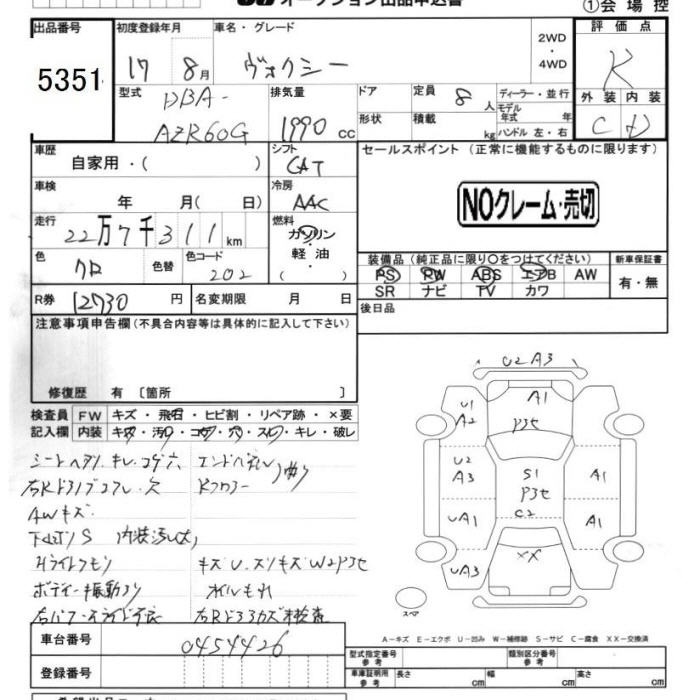 オークション出品申込書
①会場控
出品番号
5351
初度登録年月
17 8月
車名・グレード
ヴォクシー
2WD
・
4WD
評価点
R
型式
DBA-
AZR60G
排気量
1990 cc
ドア
形状
定員 8人
積載 kg
ディーラー・並行
モデル年式 年
ハンドル 左・右
外装 内装
C D
車歴
自家用・( )
シフト
CAT
セールスポイント (正常に機能するものに限ります)
NOクレーム・売切
車検
年 月( 日)
冷房
AAC
走行
22万7千311km
燃料
ガソリン
軽油
・( )
色
クロ
色替
色コード
202
装備品 (純正品に限り○をつけてください)
PS PW ABS エアB AW
SR ナビ TV カワ
新車保証書
有・無
R券 12730円
名変期限 月 日
後日品
注意事項申告欄 (不具合内容等は具体的に記入して下さい)
修復歴 有 〔箇所 〕
検査員
記入欄
FW キズ・飛石・ヒビ割・リペア跡・×要
内装 キズ・汚れ・コゲ・穴・スレ・キレ・破レ
シートヘタリ・キレ・コゲ穴
AWキズ
下廻りS 内装汚れ大
ボディー振動
オイルもれ
U2 A3
A1
P3セ
U1
A2
U2
A3
UA1
UA3
S1
P3セ
C2
A1
A1
XX
スペア
A－キズ E－エクボ U－凹み W－補修跡 S－サビ C－腐食 XX－交換済
車台番号
0454426
登録番号
型式指定番号
参考
類別区分番号
参考
車庫証明用
参考
長さ cm
幅 cm
高さ cm